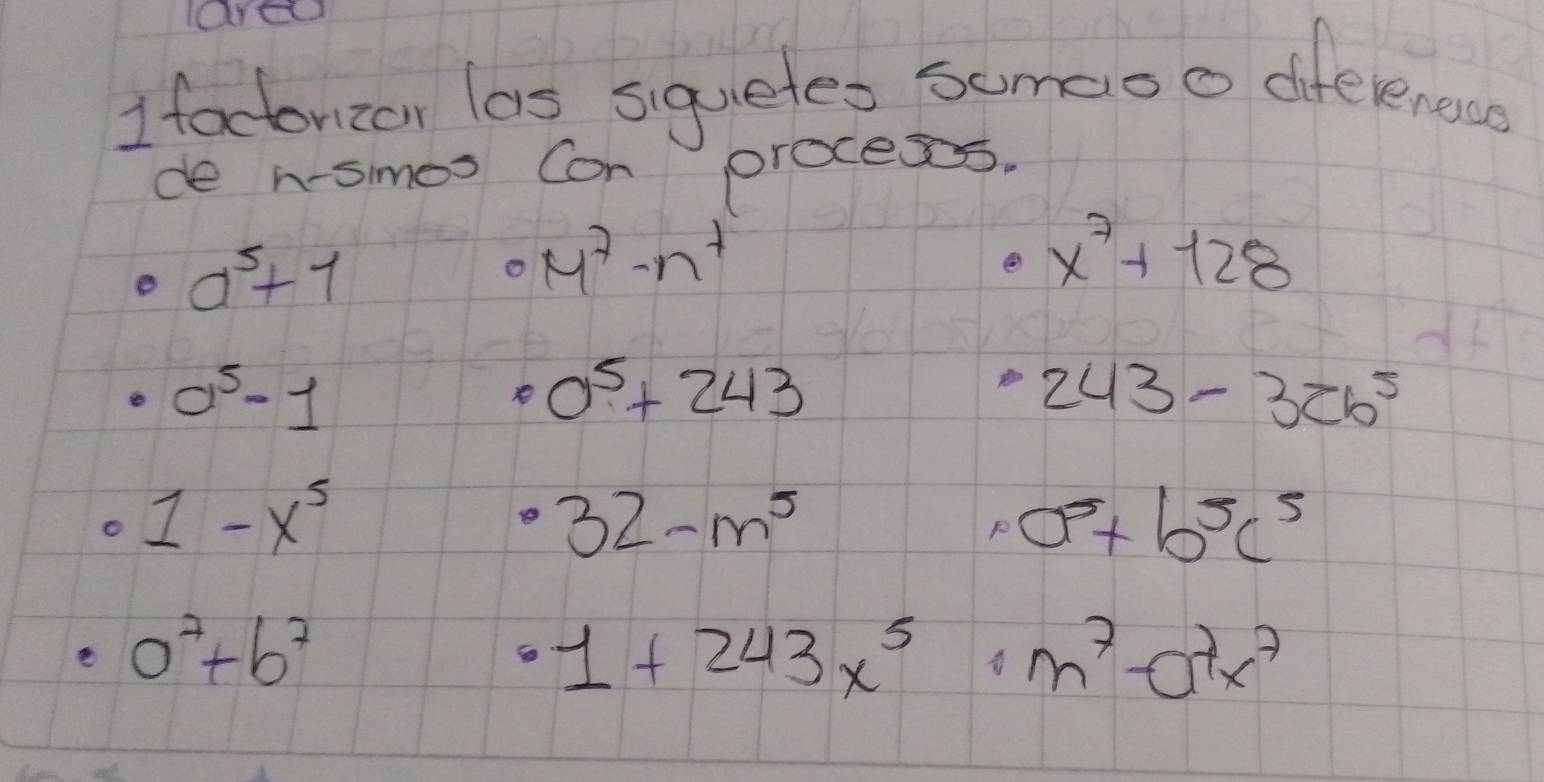 1 factorizar las siguietes sumas o diferencias
de n-simos con procesos.
• a⁵+1 • M⁷-n⁷ • x⁷+128
• a⁵-1 • a⁵+243 • 243-32b⁵
• 1-x⁵ • 32-m⁵ • a⁵+b⁵c⁵
• a⁷+b⁷ • 1+243x⁵ • m⁷-a⁷x⁷